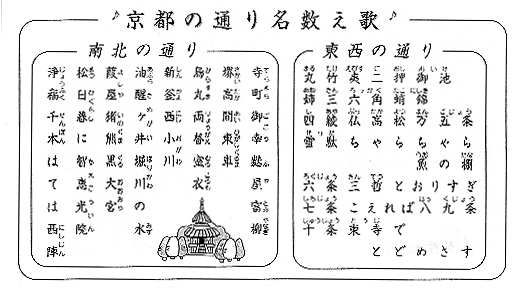 ♪京都の通り名数え歌♪
東西の通り
丸竹夷二押御池
姉三六角蛸錦
四綾仏高松万五条
雪駄ちゃらちゃら
魚の棚
六条三哲とおりすぎ
七条こえれば八九条
十条東寺で
とどめさす
南北の通り
寺町御幸麩屋富柳
堺高間東車
烏丸両替室衣
新釜西小川
油醒ケ井堀川の水
葭屋猪熊黒大宮
松日暮に智恵光院
浄福千本はては西陣